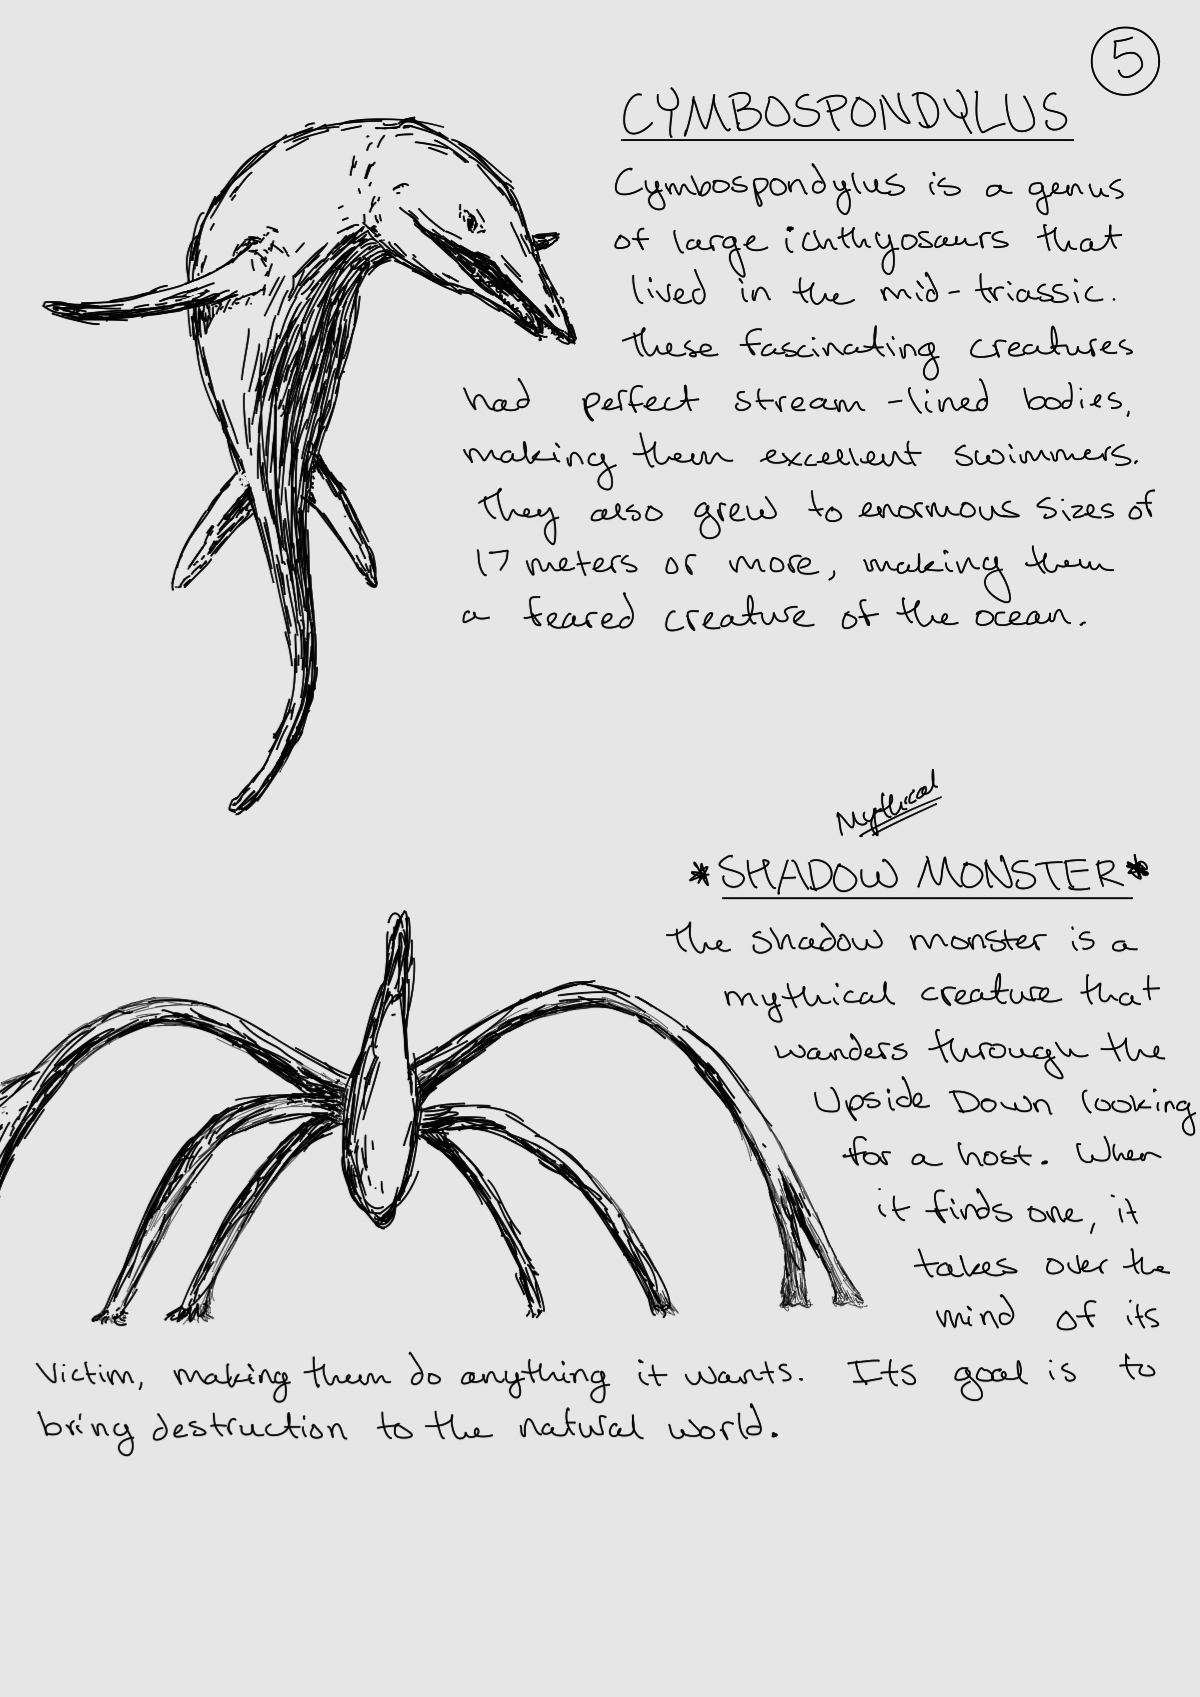 5
CYMBOSPONDYLUS
Cymbospondylus is a genus
of large ichthyosaurs that
lived in the mid-triassic.
These fascinating creatures
had perfect stream-lined bodies,
making them excellent swimmers.
They also grew to enormous sizes of
17 meters or more, making them
a feared creature of the ocean.
Mythical
*SHADOW MONSTER*
The shadow monster is a
mythical creature that
wanders through the
Upside Down looking
for a host. When
it finds one, it
takes over the
mind of its
victim, making them do anything it wants. Its goal is to
bring destruction to the natural world.